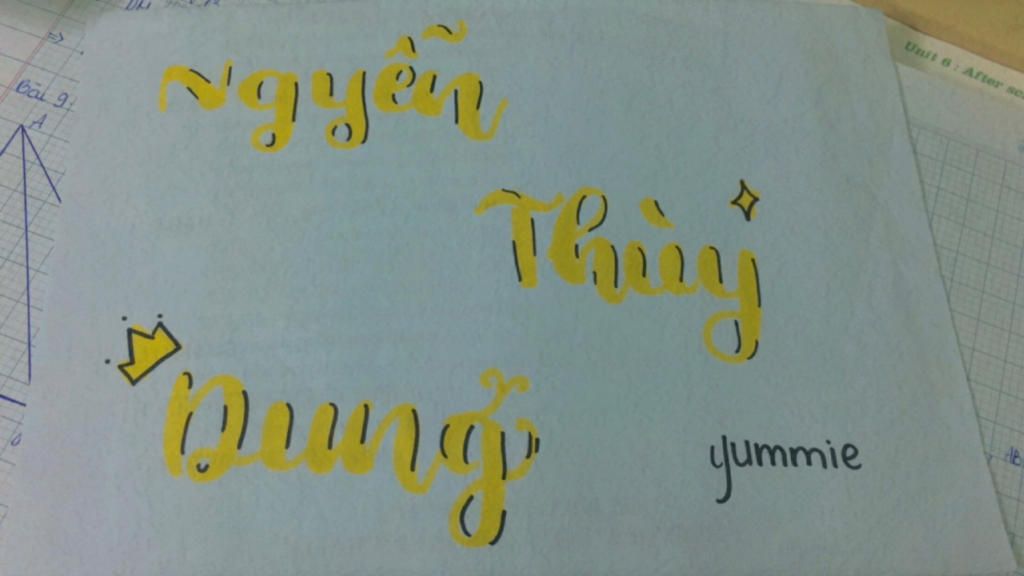 Unit 6 : After
Bài 9.
A
Ngyễn
Thùy
Dung
yummie